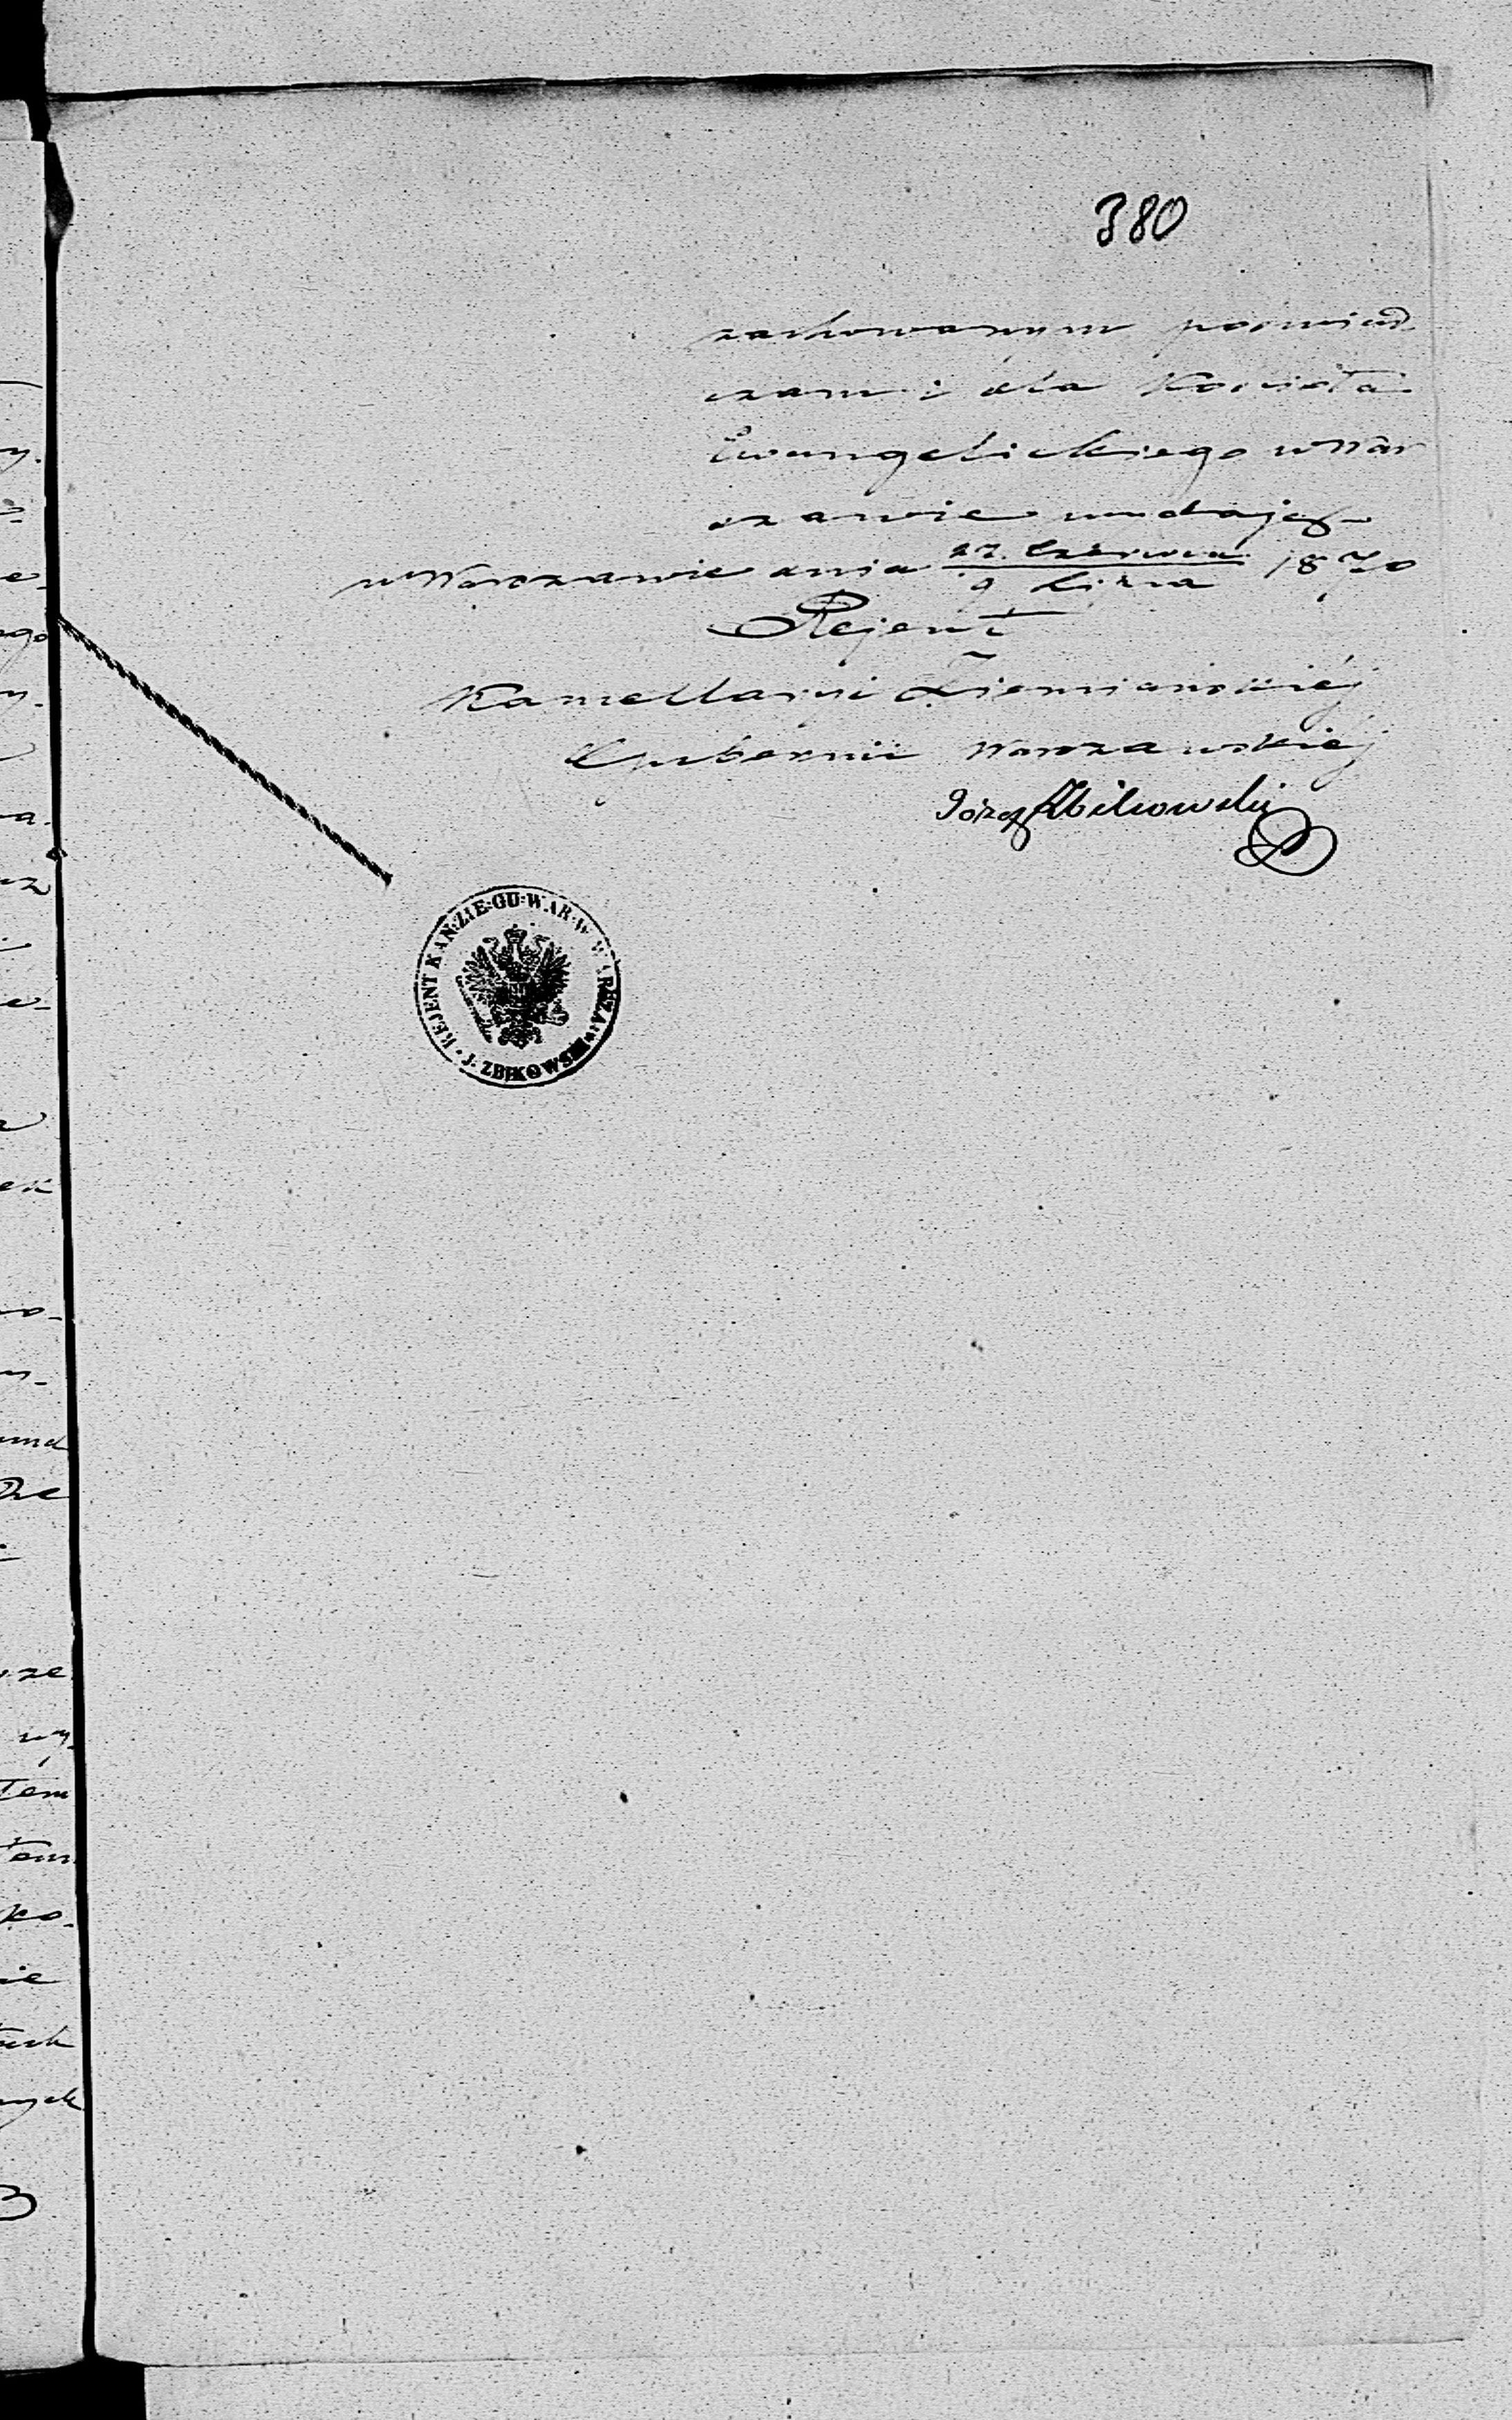 380
zachowanym poświad
czam i dla Kościoła
Ewangelickiego w War
szawie wydaję
w Warszawie dnia 27. Czerwca / 9 Lipca 1870
Rejent
Kancellaryi Ziemiańskiéj
Gubernii Warszawskiéj
Józef Zbikowski
REJENT KAN: ZIE: GU: WAR: W WARSZA: J. ZBIKOWSKI